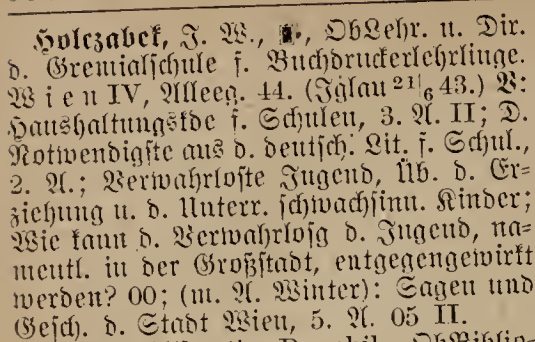 Holczabek, J. W., ObLehr. u. Dir.
d. Gremialschule f. Buchdruckerlehrlinge.
Wien IV, Alleeg. 44. (Iglau 21/6 43.) V:
Haushaltungskde f. Schulen, 3. A. II; D.
Notwendigste aus d. deutsch. Lit. f. Schul.,
2. A.; Verwahrloste Jugend, Üb. d. Er=
ziehung u. d. Unterr. schwachsinn. Kinder;
Wie kann d. Verwahrlosg d. Jugend, na=
mentl. in der Großstadt, entgegengewirkt
werden? 00; (m. A. Winter): Sagen und
Gesch. d. Stadt Wien, 5. A. 05 II.